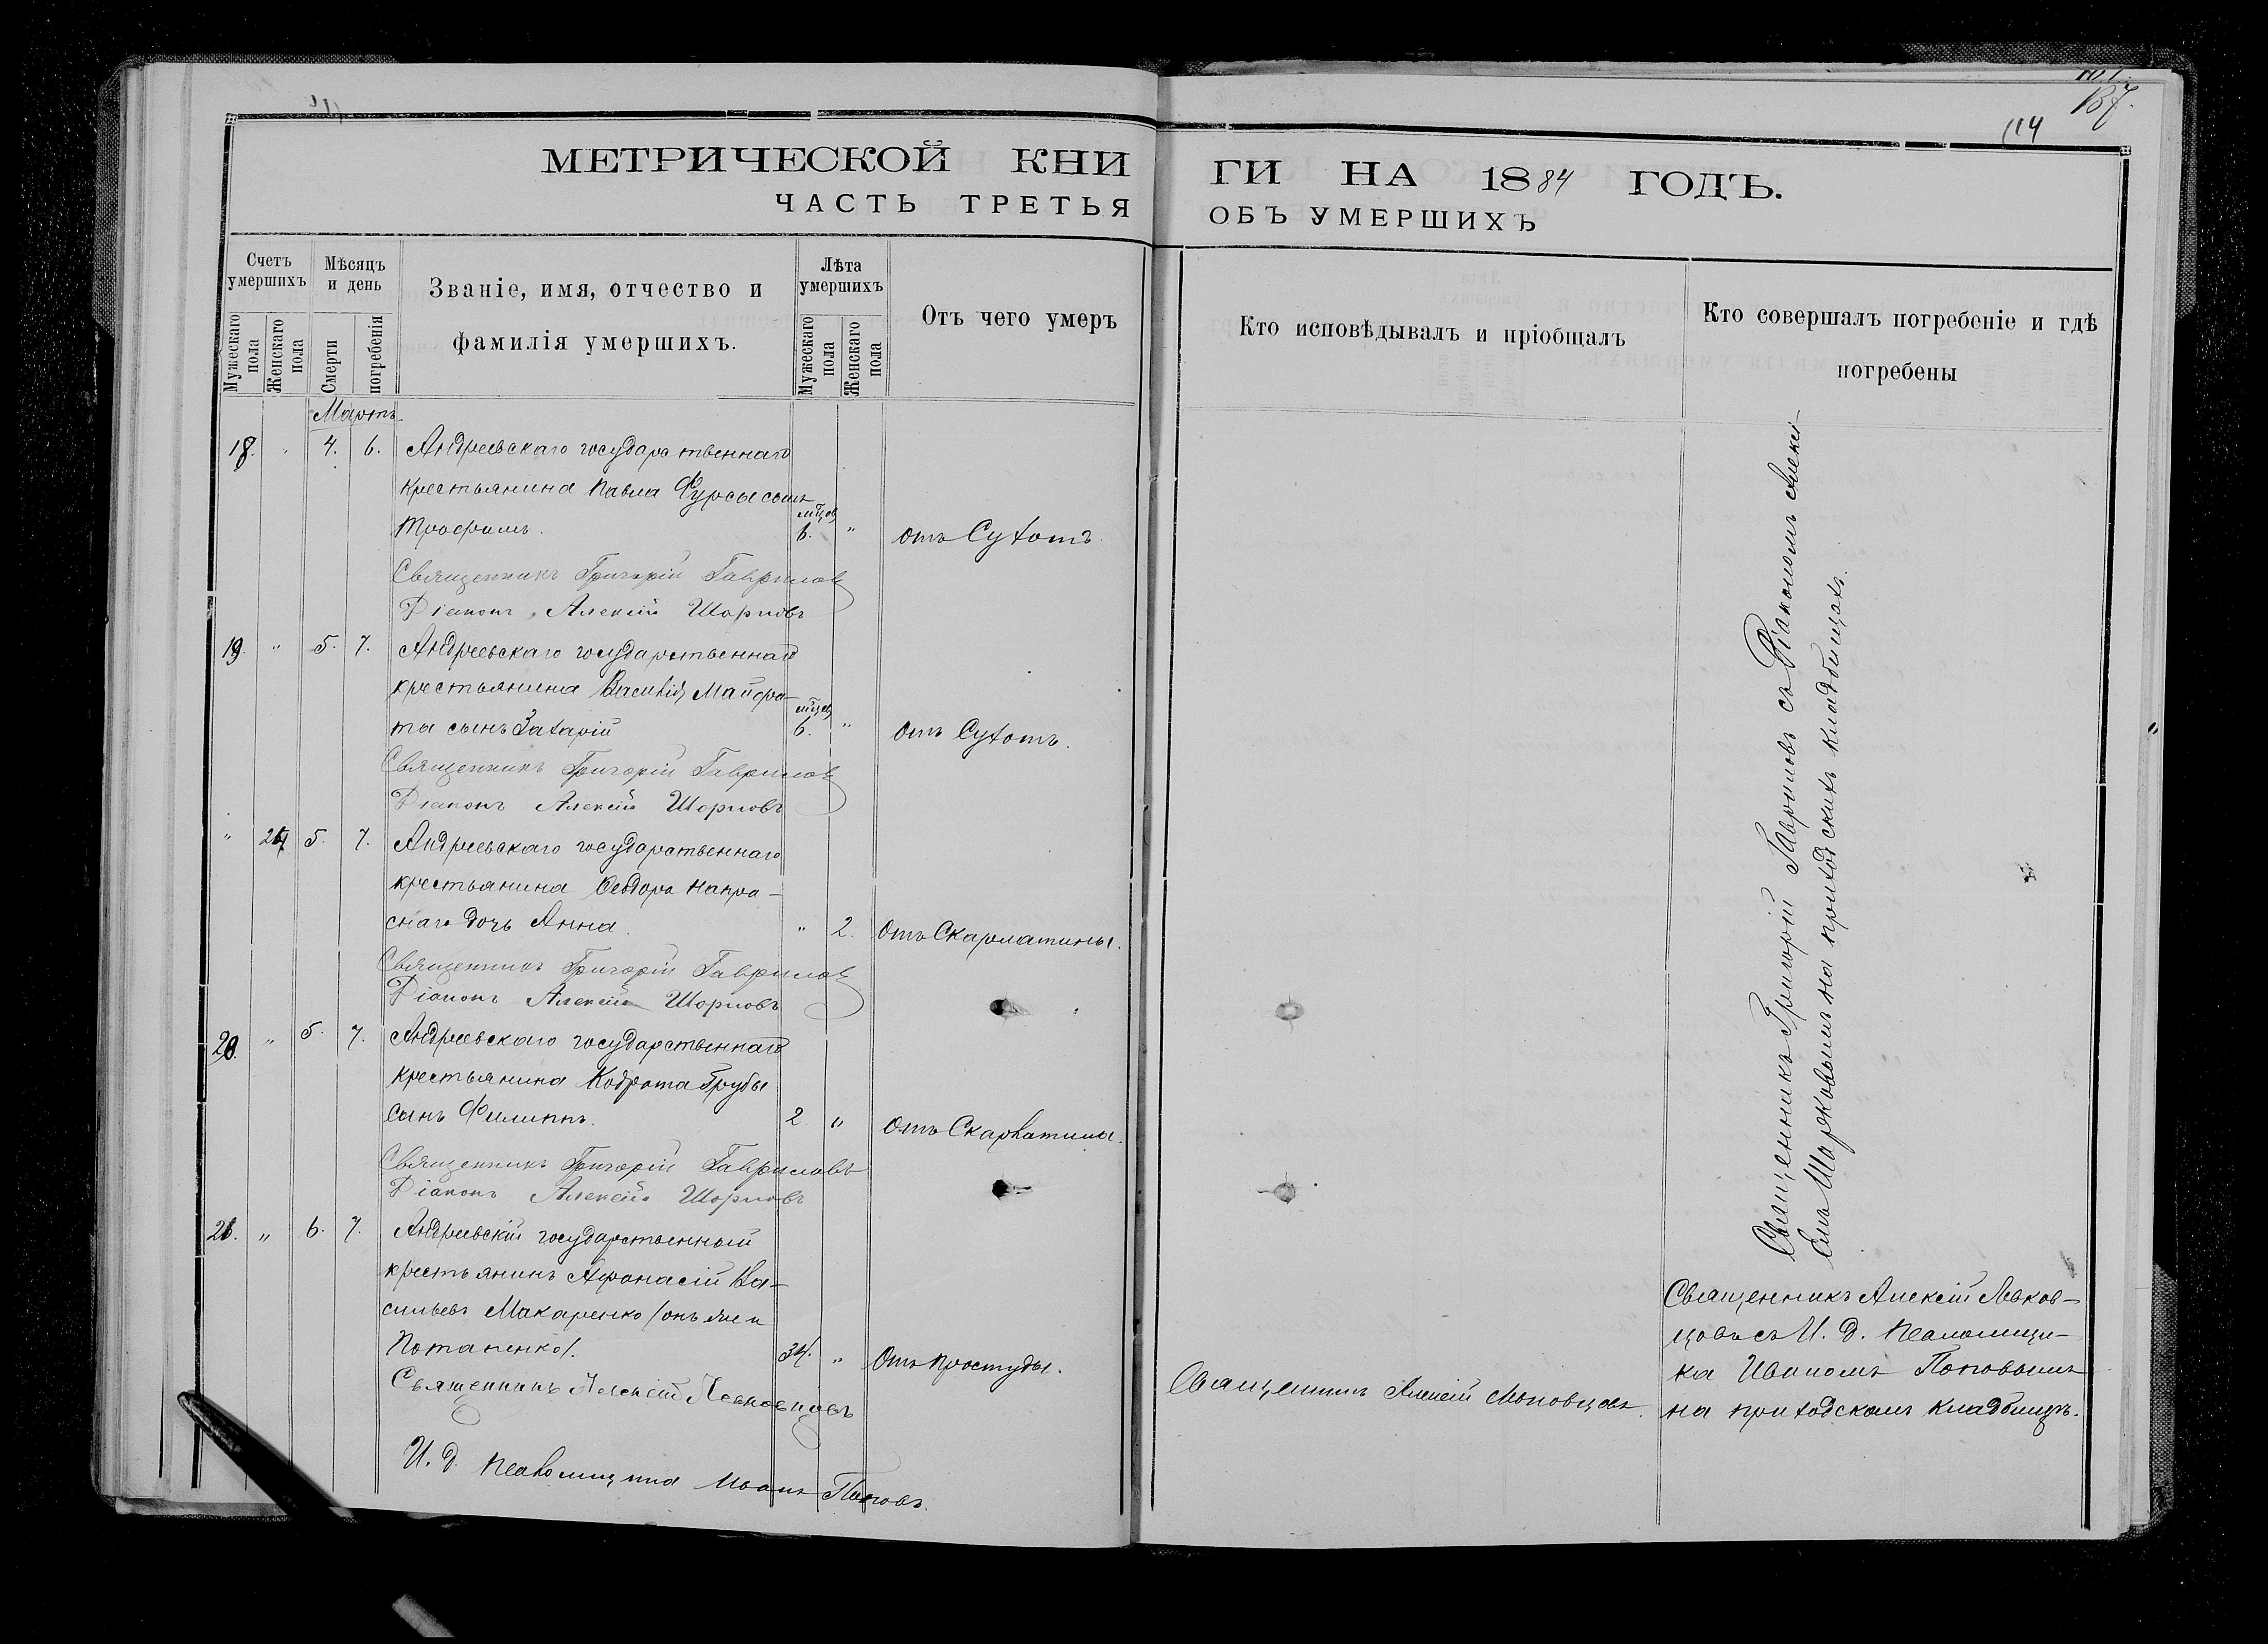 137.
114
МЕТРИЧЕСКОЙ КНИ
ГИ НА 1884 ГОДЪ.
ЧАСТЬ ТРЕТЬЯ
ОБЪ УМЕРШИХЪ
Счетъ умершихъ
Мѣсяцъ и день
Званіе, имя, отчество и
фамилія умершихъ.
Лѣта умершихъ
Отъ чего умеръ
Кто исповѣдывалъ и пріобщалъ
Кто совершалъ погребеніе и гдѣ
погребены
Мужескаго пола
Женскаго пола
Смерти
погребенія
Мужескаго пола
Женскаго пола
Мартъ
18. " 4. 6. Андреевскаго государственнаго
крестьянина Павла Фурсы сынъ
Трофимъ. мѣсцов 6. " отъ Сухотъ.
Священникъ Григорій Гавриловъ
Діаконъ Алексій
19. " 5. 7. Андреевскаго государственнаго
крестьянина Василія Майбро-
та сынъ Захарій 6. " Отъ Сухотъ.
Священникъ Григорій Гавриловъ
Діаконъ Алексій
" 5. 7. Андреевскаго государственнаго
крестьянина Ѳеодора Напра-
снаго дочь Анна. " 2. Отъ Скарлатины.
Священникъ Григорій Гавриловъ
Діаконъ Алексій
20. " 5. 7. Андреевскаго государственнаго
крестьянина Кодрата Грубы
сынъ Филиппъ. 2. " Отъ Скарлатины.
Священникъ Григорій Гавриловъ
Діаконъ Алексій
21. " 6. 7. Андреевскій государственный
крестьянинъ Афанасій Ва-
сильевъ Макаренко /онъ же и
Потапенко/. 34. " Отъ простуды.
Священникъ Алексій Левковцовъ
И. д. Псаломщика Иванъ Поповъ.
Священникъ Алексій Левковцовъ.
Священникъ Григорій Гавриловъ съ Діакономъ Алексі-
емъ на приходскихъ кладбищахъ.
Священникъ Алексій Левков-
цовъ съ И. д. Псаломщи-
ка Иваномъ Поповымъ
на приходскомъ кладбищѣ.